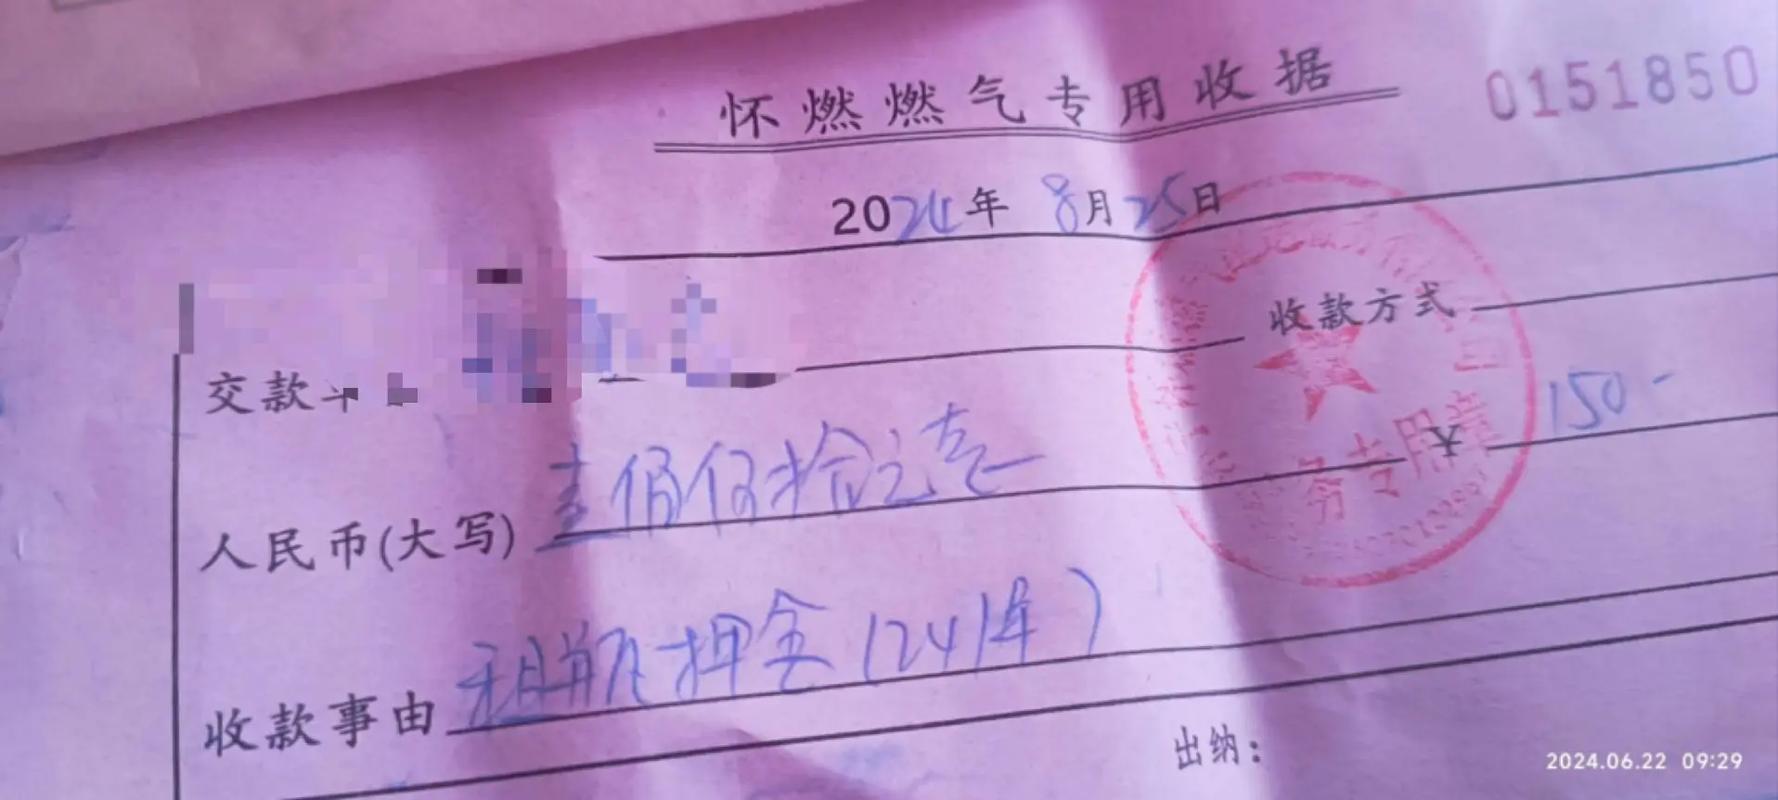 怀燃燃气专用收据
0151850
2024年 8月25日
交款
收款方式
人民币(大写) 壹佰伍拾元 ¥ 150-
收款事由 租瓶押金(241年)
务专用章
出纳:
2024.06.22 09:29